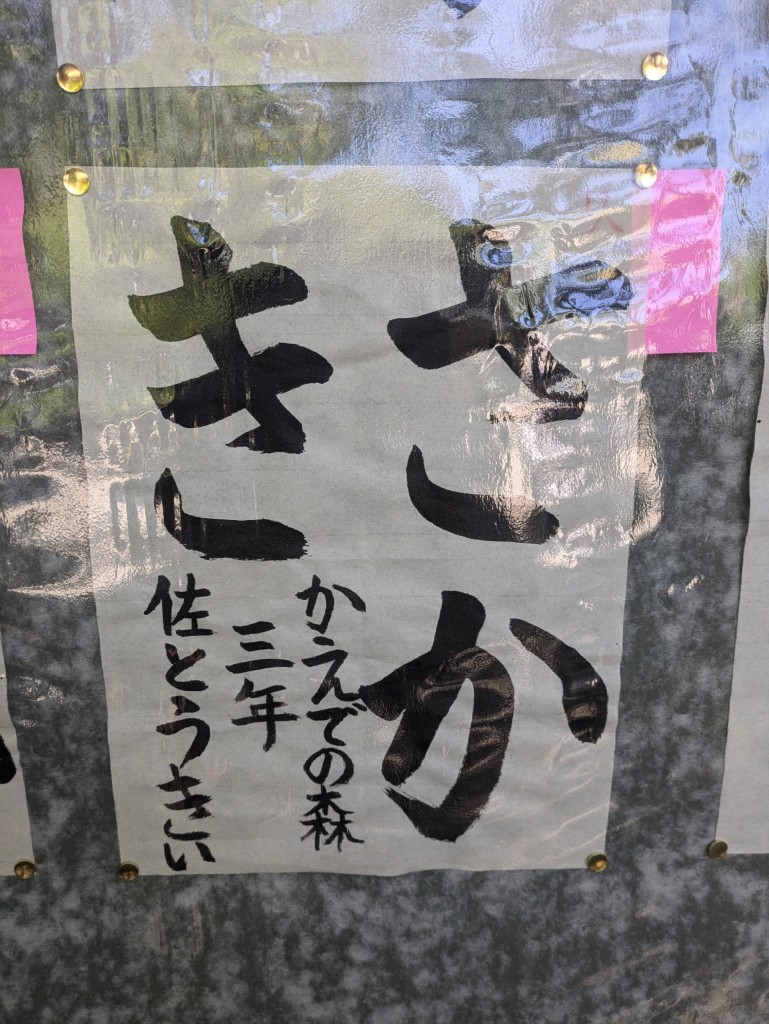 さか
き
かえでの森
三年
佐とうきい